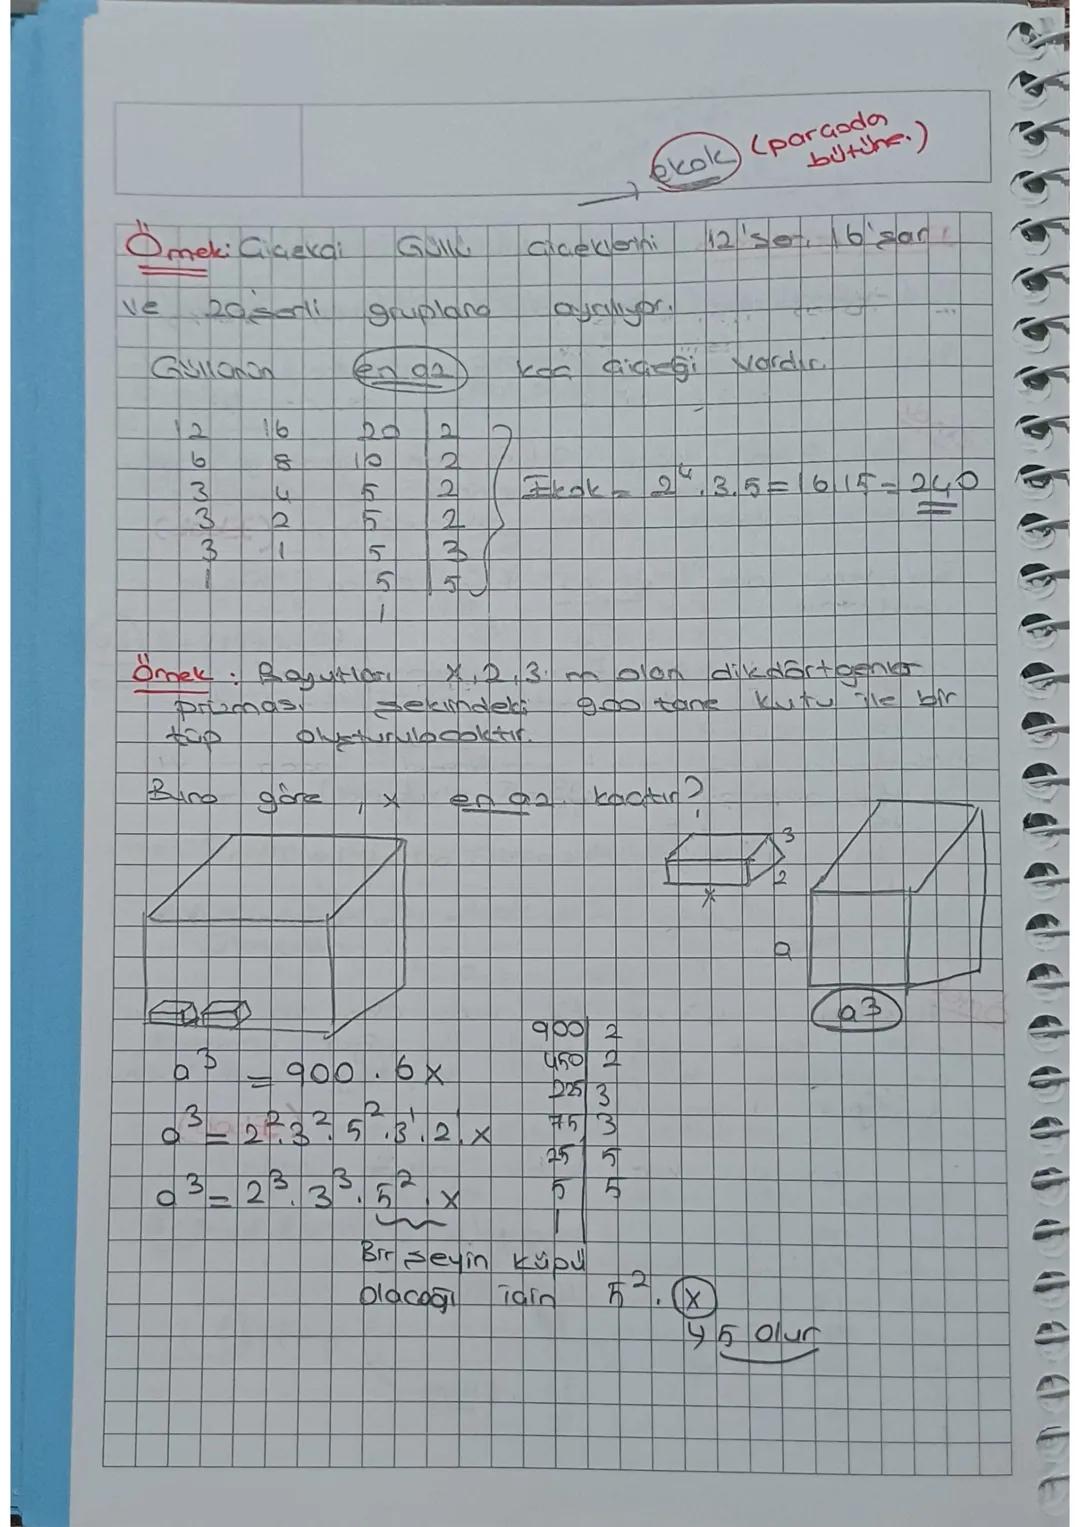 ekok (parçada
bütüne.)
Örnek: Çiçekçi Güllü çiçeklerini 12'şer, 16'şar
ve 20'şerli gruplara ayırılıyor.
Güllünün en az kaç çiçeği vardır.
12 16 20 2
6 8 10 2
3 4 5 2
Ekok = 2⁴.3.5=16.15=240
3 2 5 2
3 1 5 3
1 5 5
1
Örnek: Boyutları x, 2, 3 m olan dikdörtgenler
prizması şeklindeki 900 tane kutu ile bir
küp oluşturulacaktır.
Buna göre, x en az kaçtır?
3
2
x
a
a3
900 2
450 2
225 3
75 3
25 5
5 5
1
a³ = 900 . 6x
a³ = 2².3².5².3¹.2¹.x
a³ = 2³.3³.5².x
Bir şeyin küpü
olacağı için 5².x
5 olur